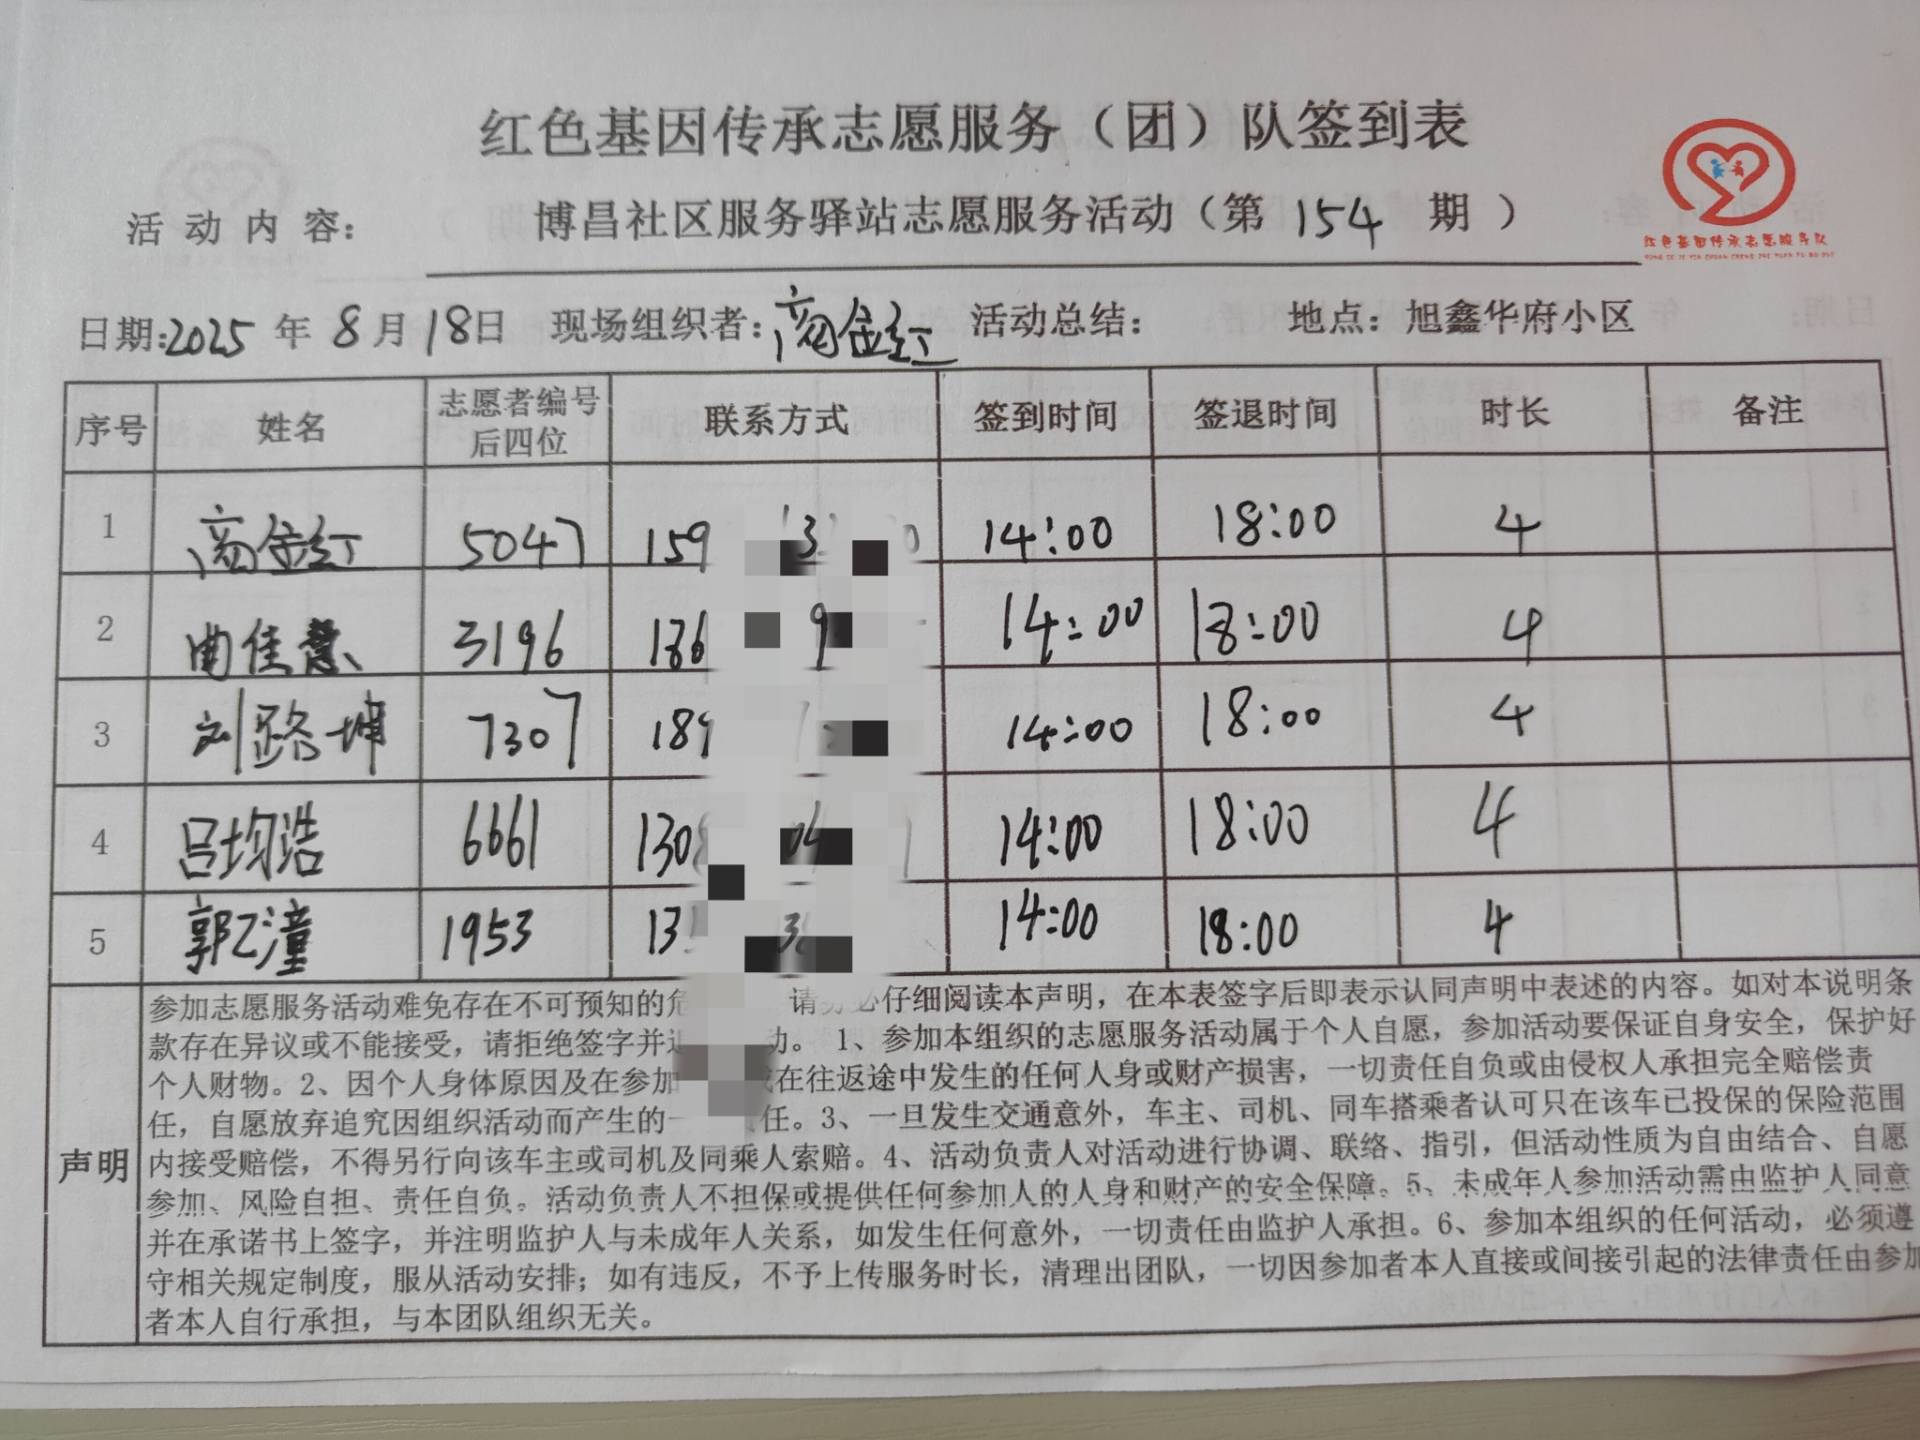 红色基因传承志愿服务（团）队签到表
活动内容： 博昌社区服务驿站志愿服务活动（第 154 期 ）
红色基因传承志愿服务队
日期:2025 年 8 月 18日 现场组织者:高金红 活动总结： 地点：旭鑫华府小区
序号 姓名 志愿者编号后四位 联系方式 签到时间 签退时间 时长 备注
1 高金红 5047 159 14:00 18:00 4
2 曲佳慧 3196 186 14:00 18:00 4
3 刘路坤 7307 189 14:00 18:00 4
4 吕均浩 6661 130 14:00 18:00 4
5 郭乙潼 1953 13 14:00 18:00 4
声明
参加志愿服务活动难免存在不可预知的危 请务必仔细阅读本声明，在本表签字后即表示认同声明中表述的内容。如对本说明条
款存在异议或不能接受，请拒绝签字并退 动。 1、参加本组织的志愿服务活动属于个人自愿，参加活动要保证自身安全，保护好
个人财物。2、因个人身体原因及在参加 或在往返途中发生的任何人身或财产损害，一切责任自负或由侵权人承担完全赔偿责
任，自愿放弃追究因组织活动而产生的一 任。3、一旦发生交通意外，车主、司机、同车搭乘者认可只在该车已投保的保险范围
内接受赔偿，不得另行向该车主或司机及同乘人索赔。4、活动负责人对活动进行协调、联络、指引，但活动性质为自由结合、自愿
参加、风险自担、责任自负。活动负责人不担保或提供任何参加人的人身和财产的安全保障。5、未成年人参加活动需由监护人同意
并在承诺书上签字，并注明监护人与未成年人关系，如发生任何意外，一切责任由监护人承担。6、参加本组织的任何活动，必须遵
守相关规定制度，服从活动安排；如有违反，不予上传服务时长，清理出团队，一切因参加者本人直接或间接引起的法律责任由参加
者本人自行承担，与本团队组织无关。